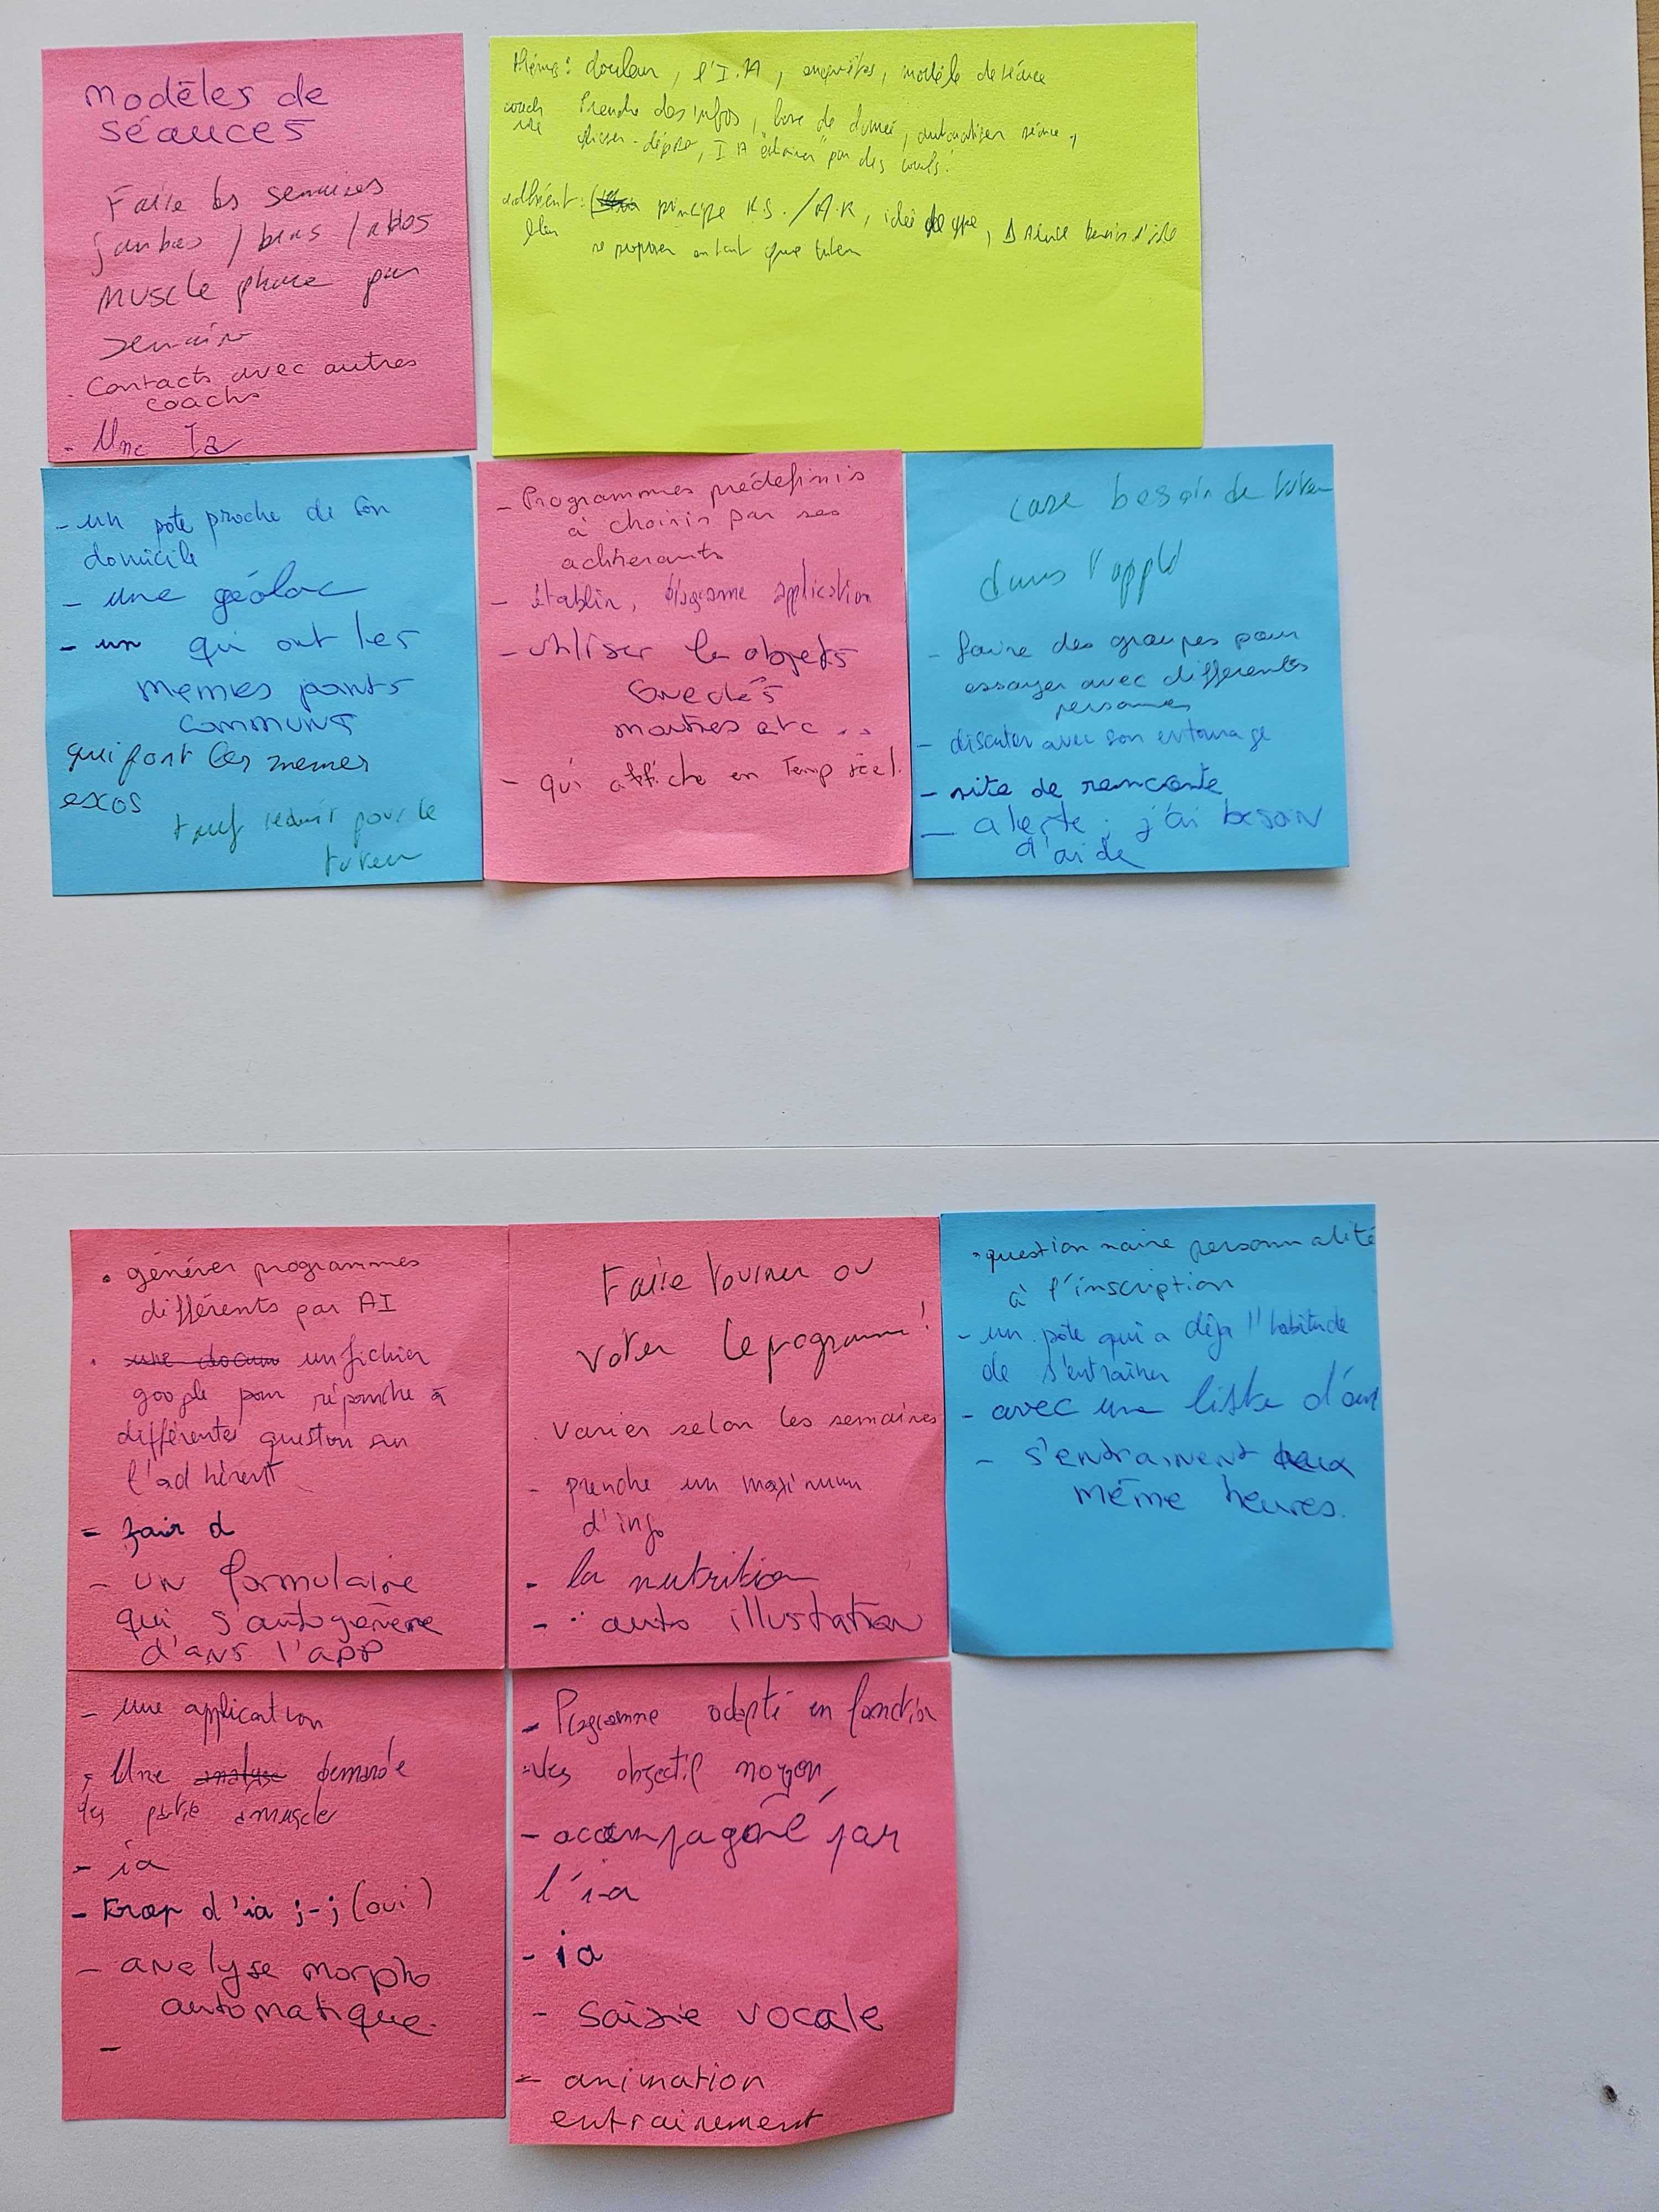 modèles de
séances
Faire les semaines
jambes / bras / abdos
muscle phare par
semaine
. Contacts avec autres
coachs
- Une Ia
thème: douleur, l'I.A, enquêtes, modèle de séance
coach Prendre des infos, base de donné, automatiser séance,
glisser-déposer, IA "entrainer" par des coachs.
adhérent: principe R.S. /A.R, idée de
se proposer en tant que tuteur
- un pote proche de son
domicile
- une géoloc
- un qui ont les
memes points
communs
qui font les memes
exos
tarif réduit pour le
tuteur
- Programmes prédefinis
à choisir par ses
adhérants
- établir, programme application
- utiliser les objets
conectés
montres etc ..
- qui affiche en Temp réel.
case besoin de tuteur
dans l'appli
- faire des groupes pour
essayer avec differentes
personnes
- discuter avec son entourage
- site de rencontre
- alerte : j'ai besoin
d'aide
• générer programmes
différents par AI
. une docum un fichier
google pour répondre à
différente question sur
l'adhérent
- fair d
- un formulaire
qui s'autogénère
d'ans l'app
Faire tourner ou
voter le programme!
. varier selon les semaines
- prendre un maximum
d'info
- la nutrition
- auto illustration
• question naire personnalité
à l'inscription
- un pote qui a déjà l'habitude
de s'entraîner
- avec une liste d'ami
- s'entrainent
même heures.
- une application
- Une analyse demande
des partie a muscler
- ia
- trop d'ia ;-; (oui)
- analyse morpho
automatique.
-
- Programme adapté en fonction
des objectif moyen
- acompagné par
l'i-a
- ia
- saisie vocale
- animation
entrainement